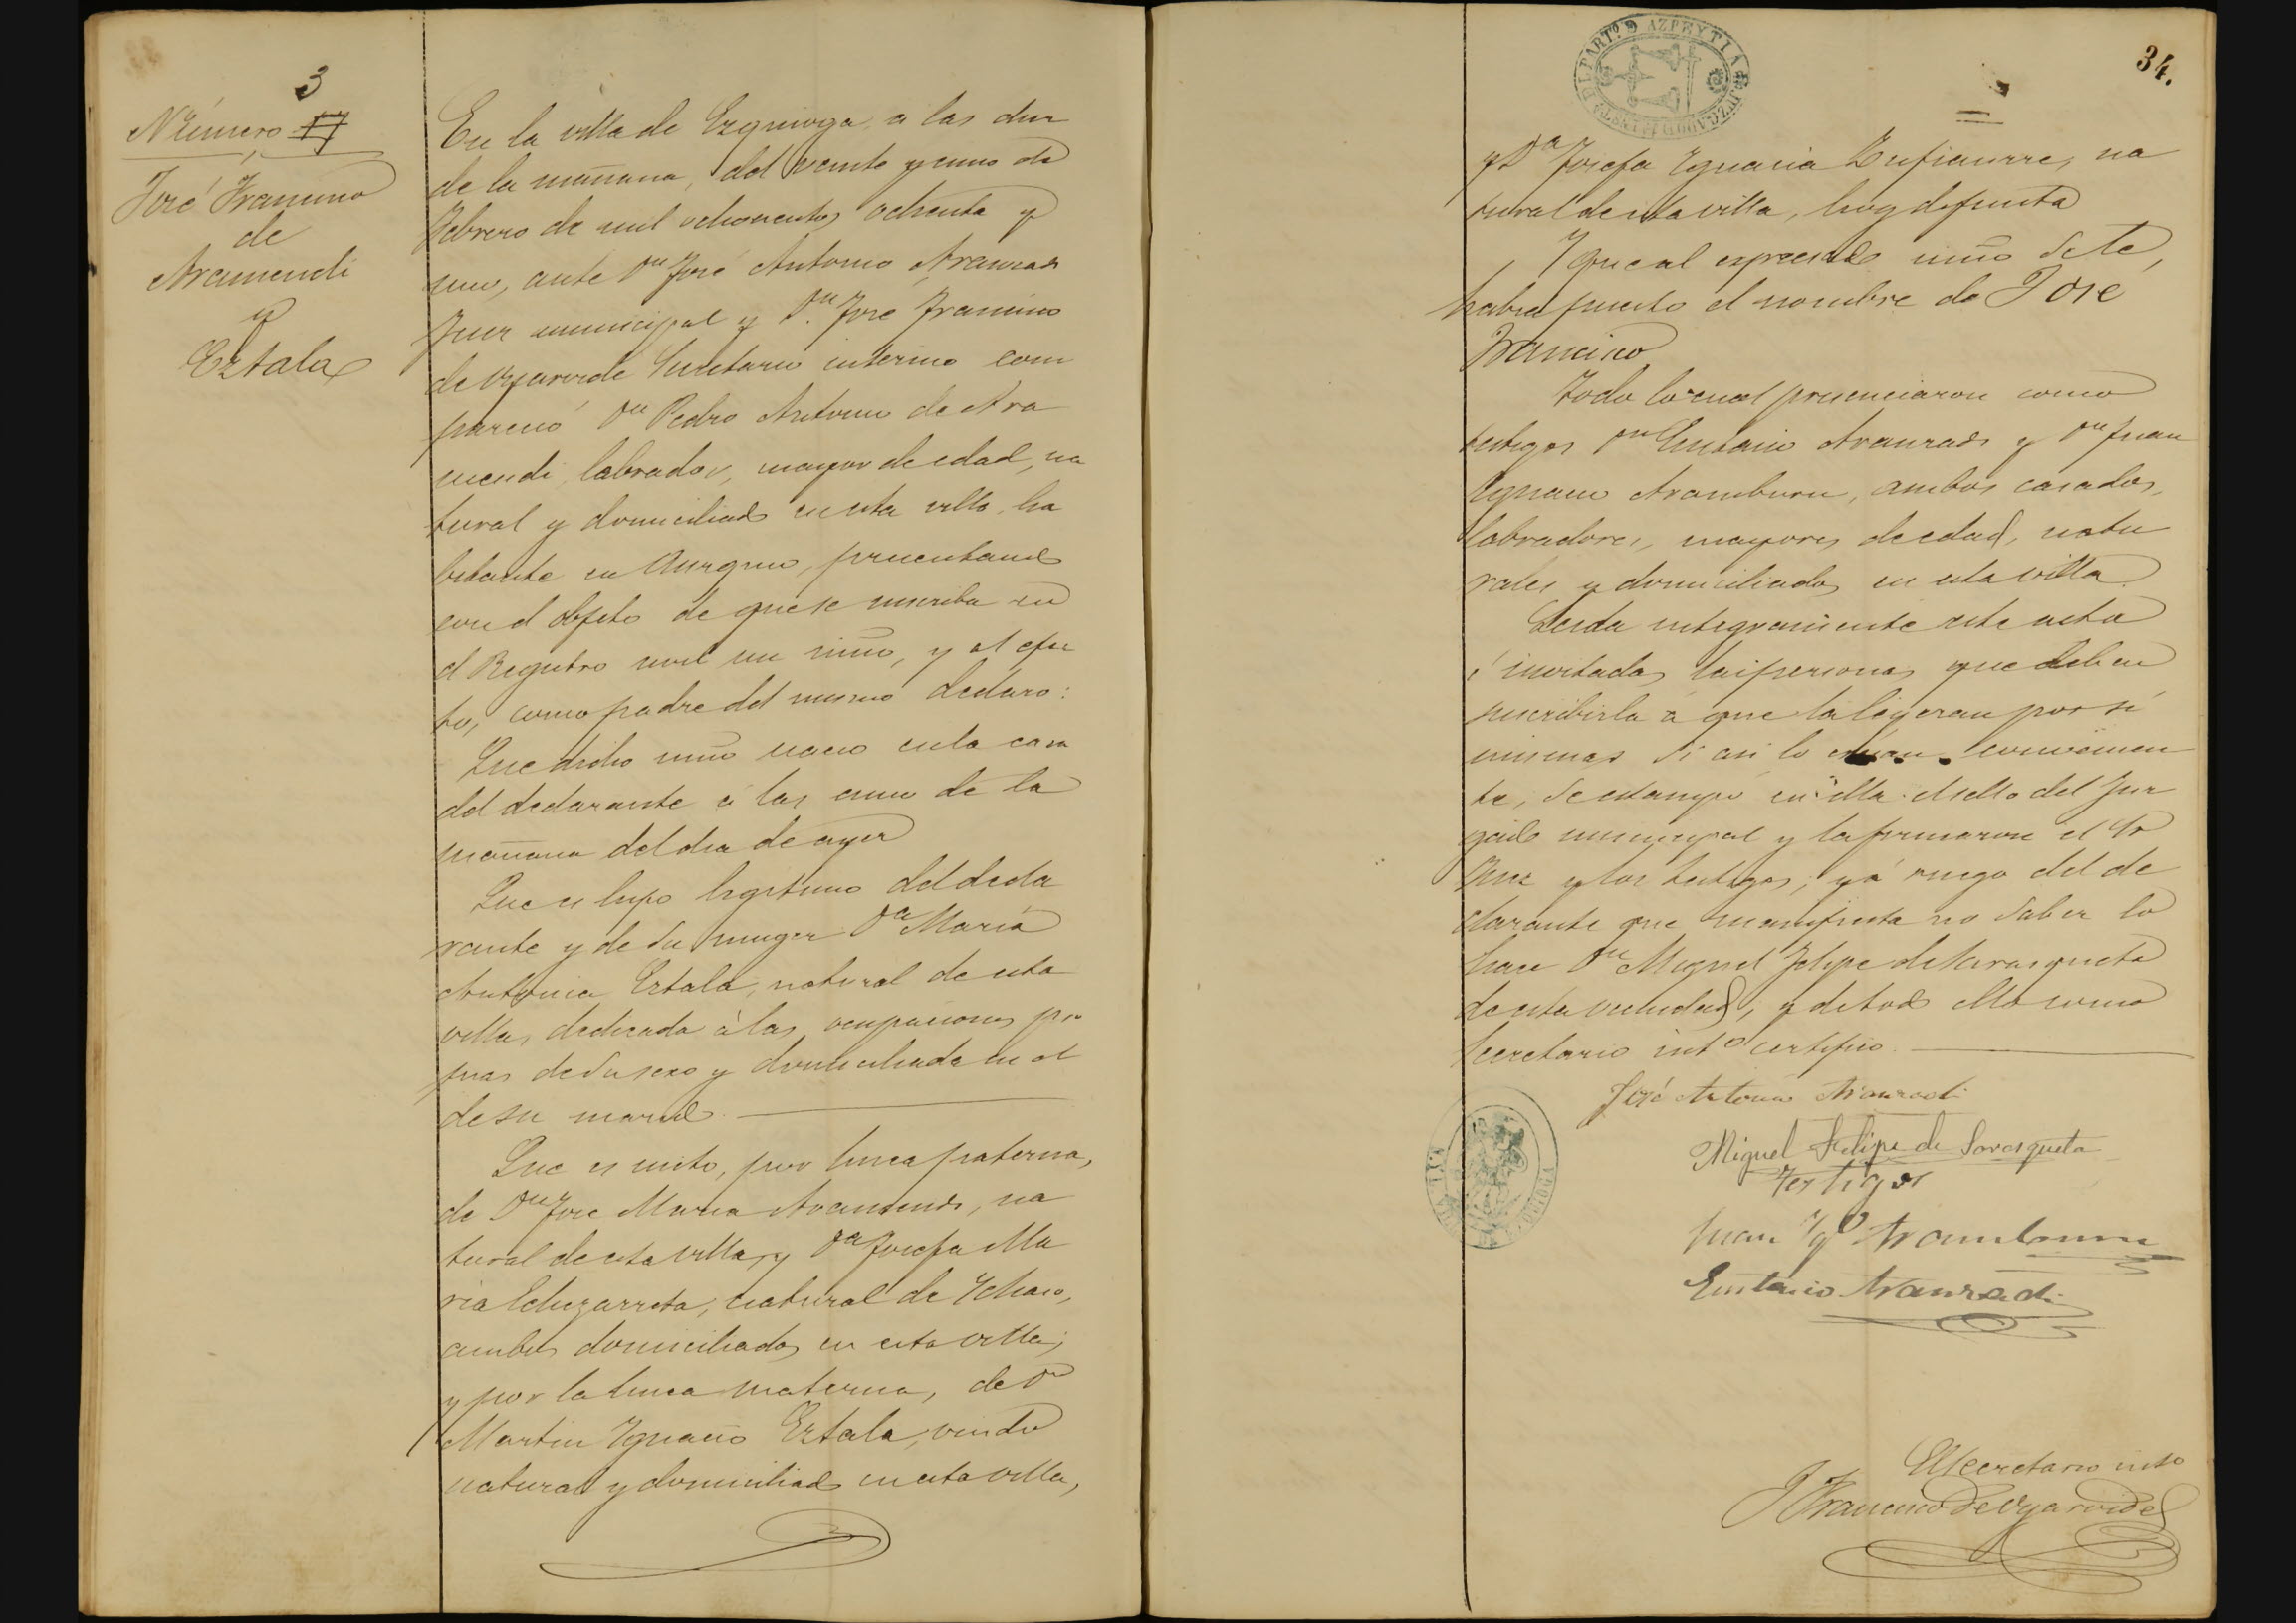 3
Número 17
José Francisco
de
Aramendi
y
Eztala
En la villa de Ezquioga, a las diez
de la mañana, del veinte y cinco de
Febrero de mil ochocientos ochenta y
uno, ante Dn José Antonio Aranzadi
Juez municipal y Dn José Francisco
de Oyarvide Secretario interino com
pareció Dn Pedro Antonio de Ara
mendi, labrador, mayor de edad, na
tural y domiciliado en esta villa, ha
bitante en, presentando
con el objeto de que se inscriba en
el Registro civil un niño, y al efec
to, como padre del mismo declaro:
Que dicho niño nacio en la casa
del declarante á las cinco de la
mañana del dia de ayer
Que es hijo legitimo del decla
rante y de su muger Da María
Antonia Eztala, natural de esta
villa, dedicada á las ocupaciones pro
pias de su sexo y domiciliada en el
de su marido.
Que es nieto, por linea paterna,
de Dn José Maria Aramendi, na
tural de esta villa, y Da Josefa Ma
ria Echezarreta, natural de Ichaso,
ambos domiciliados en esta villa;
y por la linea materna, de Dn
Martin Ignacio Eztala, viudo
natural y domiciliado en esta villa,
34.
y Da Josefa Ignacia, na
tural de esta villa, hoy difunta
Y que al expresado niño se le
habia puesto el nombre de José
Francisco
Todo lo cual presenciaron como
testigos Dn Eustasio Aranzadi y Dn Juan
Ignacio Aramburu, ambos casados,
labradores, mayores de edad, natu
rales y domiciliados en esta villa
Leida integramente este acta
é invitadas las personas que deben
suscribirla á que la leyeran por sí
mismas si asi lo creian convenien
te, se estampó en ella el sello del Juz
gado municipal y la firmaron el Sr
Juez y los testigos; y á ruego del de
clarante que manifiesta no saber lo
hace Dn Miguel Felipe de Sarasqueta
de esta vecindad, y de todo ello como
Secretario into certifico.
José Antonio Aranzadi
Miguel Felipe de Sarasqueta
Testigos
Juan Igo Aramburu
Eustasio Aranzadi
El Secretario into
J Francisco de Oyarvide